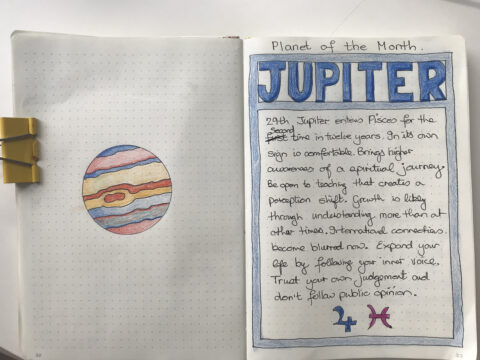 Planet of the Month.
JUPITER
29th Jupiter enters Pisces for the
Second
first time in twelve years. In its own
sign is comfortable. Brings higher
awareness of a spiritual journey.
Be open to teaching that creates a
perception shift. Growth is likely
through understanding more than at
other times. International connections
become blurred now. Expand your
life by following your inner voice.
Trust your own judgement and
don't follow public opinion.
♃ ♓